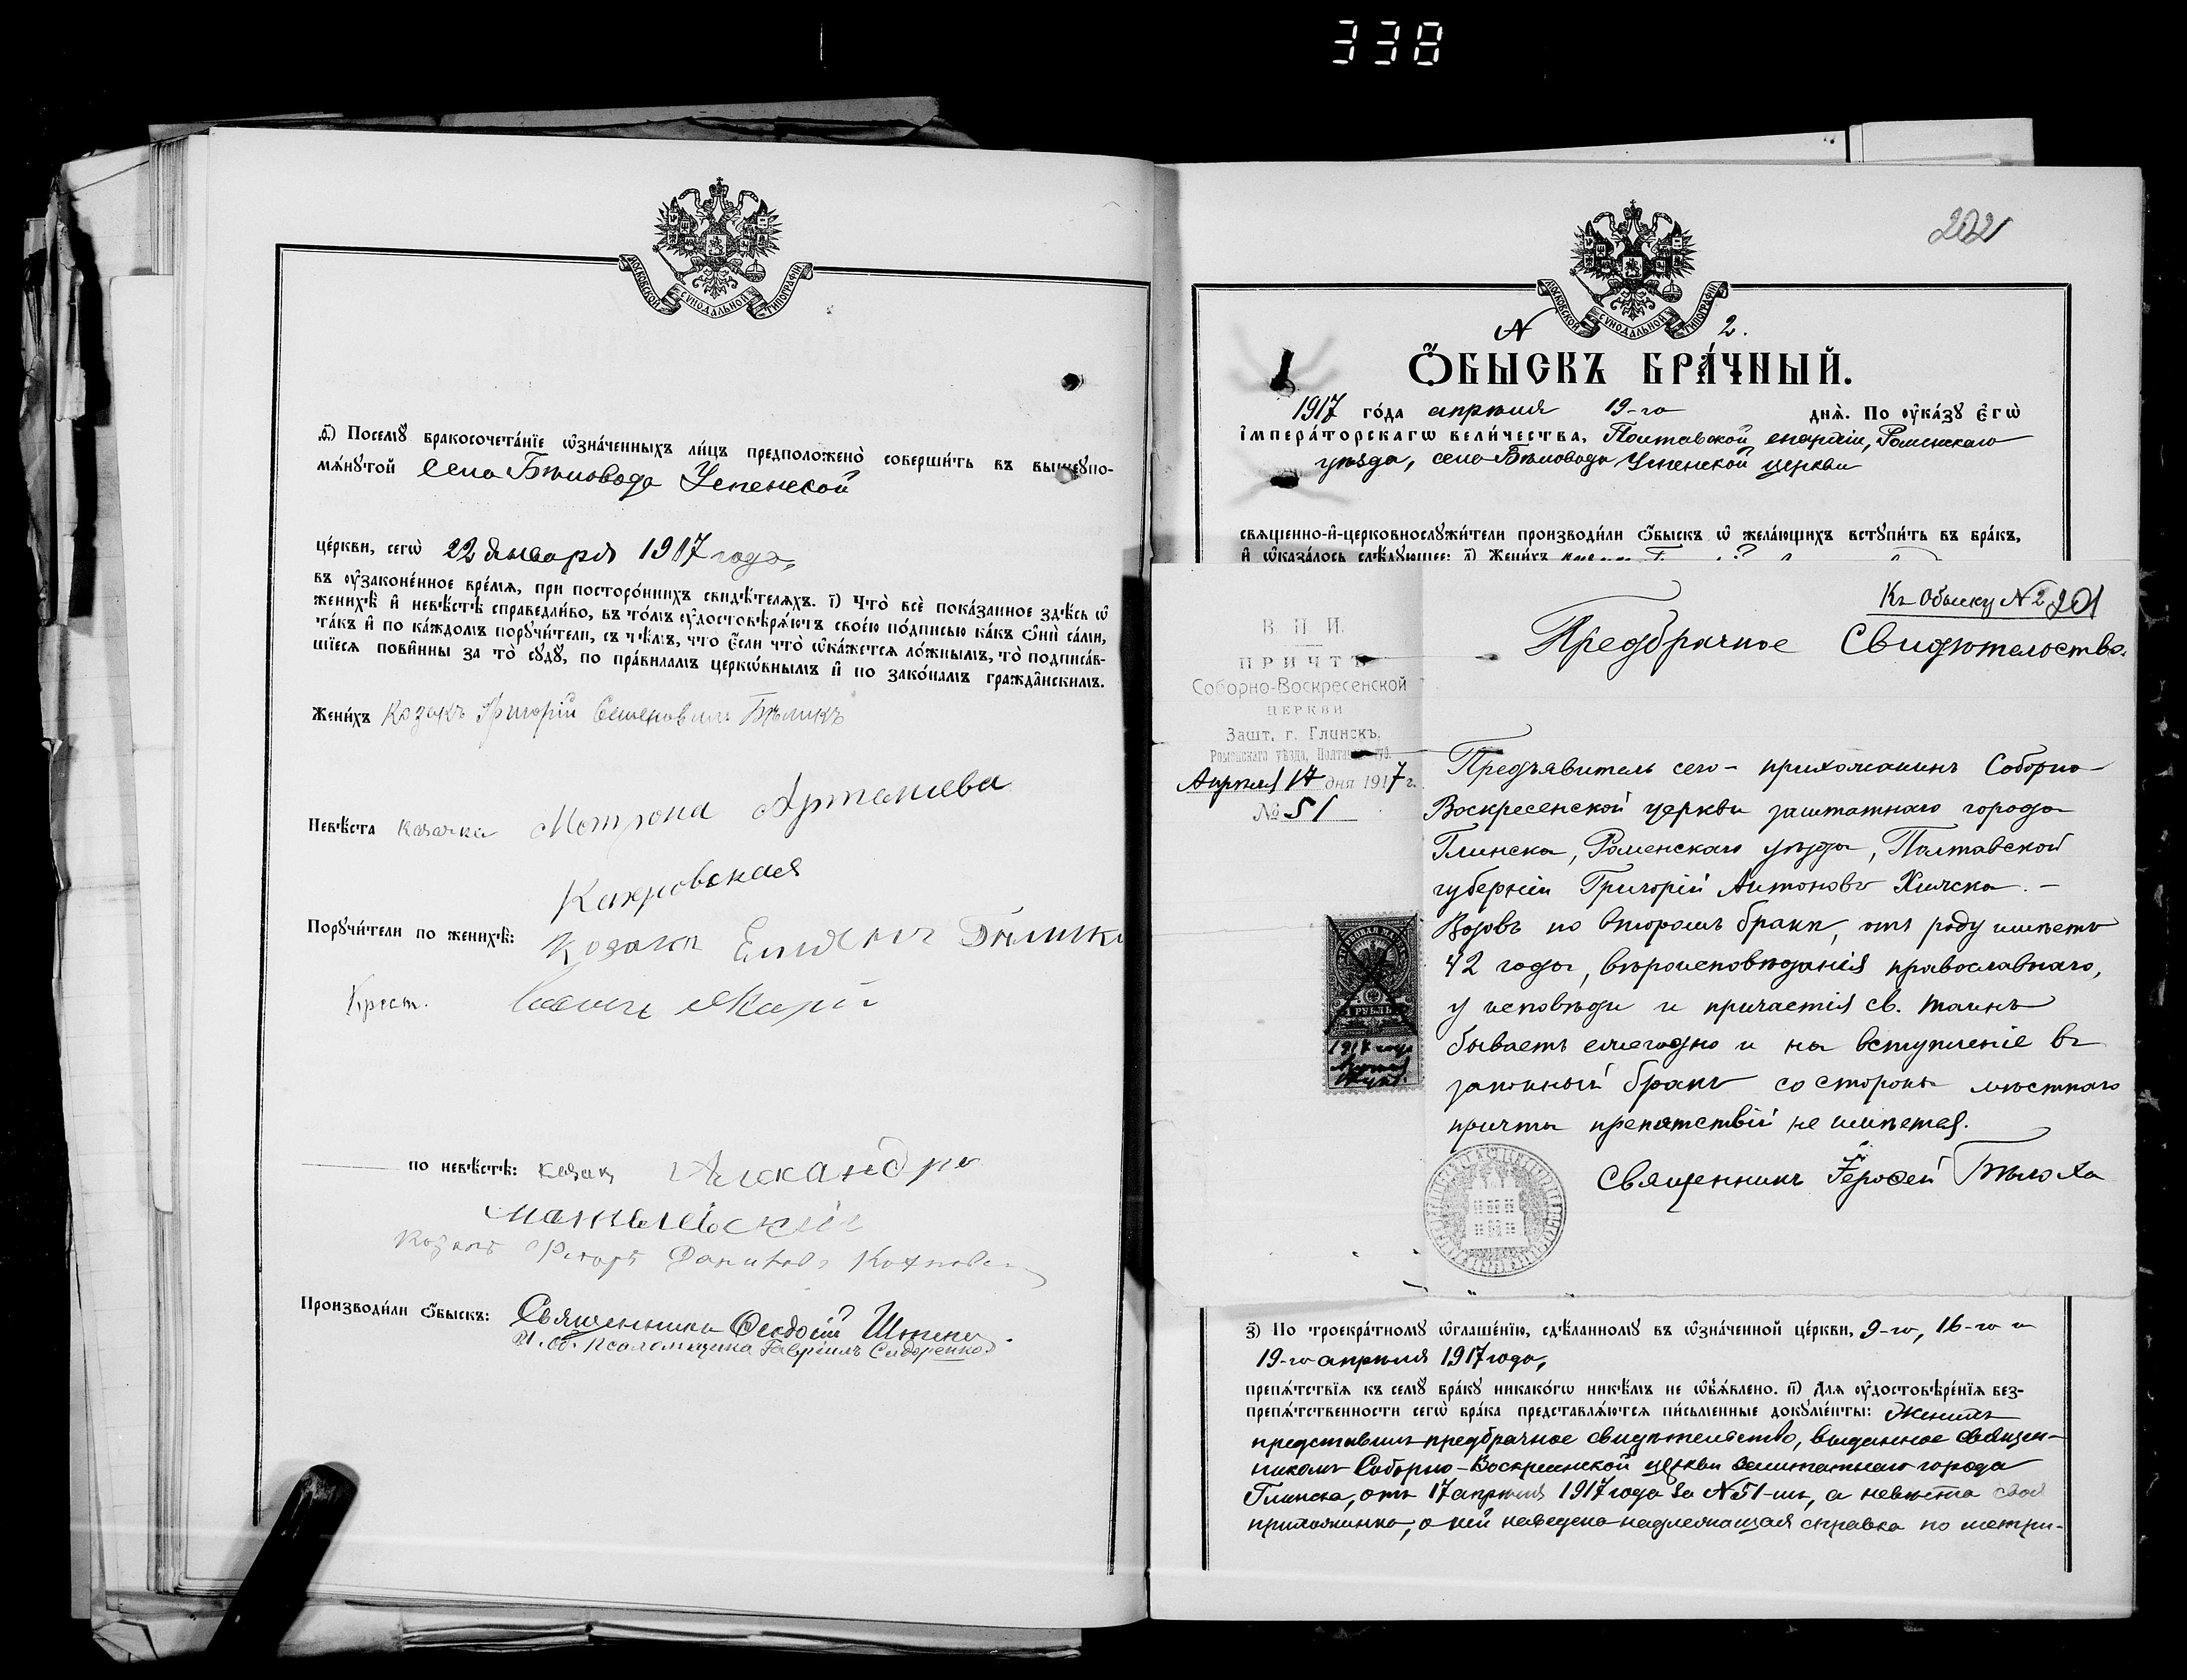 338
МОСКОВСКОЙ СѴНОДАЛЬНОЙ ТИПОГРАФІИ
д҃і) Посемꙋ бракосочета́нїе ѡзна́ченныхъ ли́цъ предположено̀ соверши́ть въ вышеупо-
мѧ́нутой села Бѣловода Успенской
це́ркви, сегѡ̀ 22 января 1917 года,
въ ᲂу҆законе́нное вре́мѧ, при посторо́ннихъ свидѣ́телѧхъ. і҃) Что̀ всѐ пока́занное здѣ́сь ѡ҆
женихѣ̀ и҆ невѣ́стѣ справедли́во, въ то́мъ ᲂу҆достовѣрѧ́ютъ свое́ю по́дписью ка́къ ѻ҆нѝ са́ми,
та́къ и҆ по ка́ждомъ порꙋчи́тели, съ тѣ́мъ, что є҆́сли что̀ ѡ҆ка́жетсѧ ло́жнымъ, то̀ подписа́в-
шїесѧ пови́нны за то̀ сꙋдꙋ̀, по пра́виламъ церкѡ́внымъ и҆ по зако́намъ гражда̂нскимъ.
Жени́хъ Козакъ Григорій Семеновичъ Бѣликъ
Невѣ́ста казачка Мотрона Артемиева
Кахновская
Порꙋчи́тели по женихѣ̀: Козакъ Емѣльянъ Бѣликъ
Крест.
по невѣ́стѣ: казакъ Александръ
Козакъ Федоръ Даниловъ
Производи́ли ѻ҆́быскъ: Священникъ Ѳеодосій
И. об. псаломщика Гавриилъ Сидоренко
202
МОСКОВСКОЙ СѴНОДАЛЬНОЙ ТИПОГРАФІИ
N 2.
Ѻ҆́БЫСКЪ БРА́ЧНЫЙ.
1917 го́да апрѣля 19-го днѧ̀. По ᲂу҆ка́зꙋ є҆гѡ̀
і҆мпера́торскагѡ вели́чества, Полтавской епархіи, Роменскаго
уѣзда, села Бѣловода Успенской церкви
свѧщенно-и҆-церковнослꙋжи́тели производи́ли ѻ҆́быскъ ѡ҆ жела́ющихъ встꙋпи́ть въ бра́къ,
и҆ ѡ҆каза́лось слѣ́дꙋющее: а҃) Жени́хъ
Къ Обыску N 2 201
В П И.
ПРИЧТЪ
Соборно-Воскресенской
ЦЕРКВИ
Зашт. г. Глинскъ,
Роменскаго уѣзда, Полтавск. губ.
Апрѣля 17 дня 1917 г.
№ 51
Предбрачное Свидѣтельство.
Предъявитель сего - прихожанинъ Соборно-
Воскресенской церкви заштатнаго города
Глинска, Роменскаго уѣзда, Полтавской
губерніи Григорій Антоновъ
Вдовъ по второмъ бракѣ, отъ роду имѣетъ
42 года, вѣроисповѣданія православнаго,
у исповѣди и причастія св. таинъ
бываетъ ежегодно и на вступленіе въ
законный бракъ со стороны мѣстнаго
причта препятствій не имѣется.
Священникъ Іероѳей
1 РУБЛЬ
1917 года
Апрѣля
з҃) По троекра́тномꙋ ѡ҆глаше́нїю, сдѣ́ланномꙋ въ ѡ҆зна́ченной це́ркви, 9-го, 16-го и
19-го апрѣля 1917 года,
препѧ́тствїѧ къ семꙋ̀ бра́кꙋ никако́гѡ никѣ́мъ не ѡ҆б̾ѧ́влено. и҃) Длѧ ᲂу҆достовѣре́нїѧ без-
препѧ́тственности сегѡ̀ бра́ка представлѧ́ютсѧ пи́сьменные докꙋме́нты: Женихъ
представилъ предбрачное свидѣтельство, выданное священ-
никомъ Соборно-Воскресенской церкви заштатнаго города
Глинска, отъ 17 апрѣля 1917 года за N 51-мъ, а невѣста своя
прихожанка, о ней наведена надлежащая справка по метри-